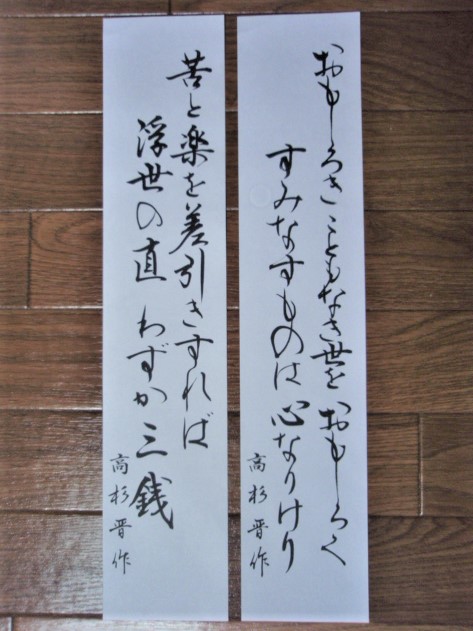 おもしろきこともなき世をおもしろく
すみなすものは心なりけり
高杉晋作
苦と楽を差引きすれば
浮世の直わずか三銭
高杉晋作